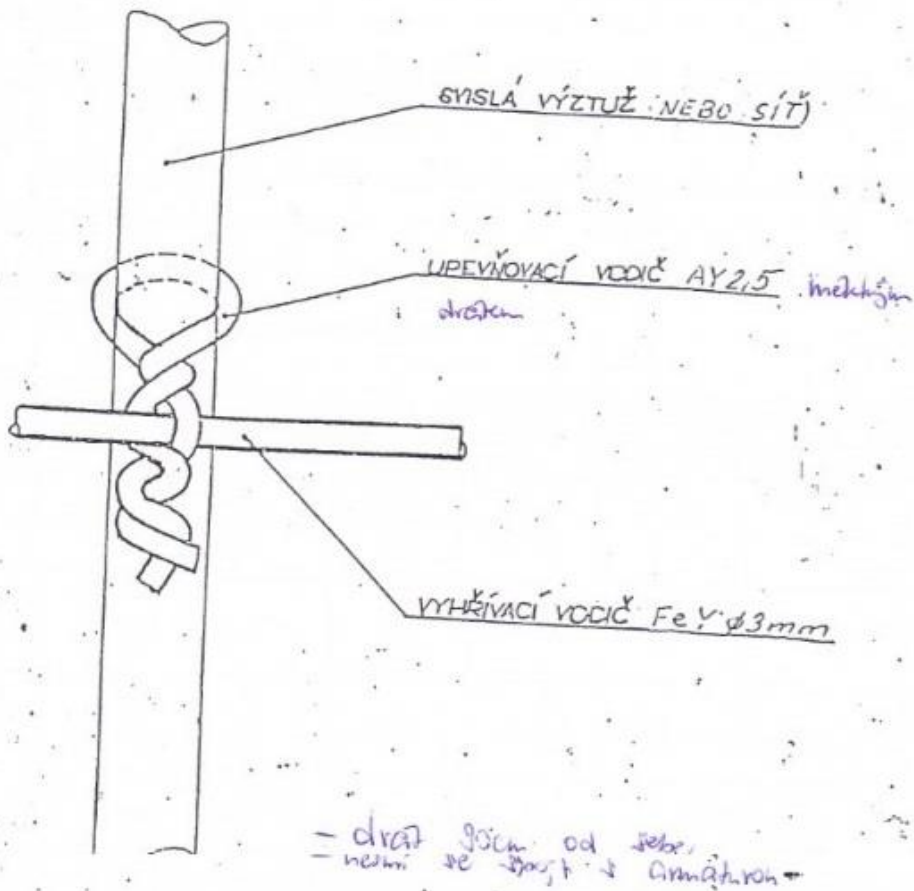 SVISLÁ VÝZTUŽ NEBO SÍŤ)
UPEVŇOVACÍ VODIČ AY 2,5 měkkým
drátem
VYHŘÍVACÍ VODIČ FeY ø3mm
- drát od sebe
- nesmí se spojit s armaturou